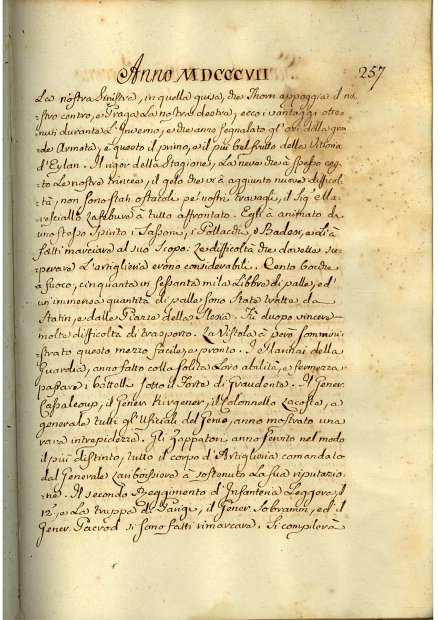 Anno MDCCCVII
257
La nostra Sinistra, in quella guisa, che Thorn appoggia il no=
=stro centro, e Praga la nostra destra; ecco i vantaggi otte=
=nuti durante L'Inverno, e che anno segnalato gl'ozi della gran=
=de Armata; e questo il primo, e il più bel frutto della Vittoria
d'Eylau. Il rigor della Stagione, La neve che à spesso coper=
to Le nostre trincee, il gelo che vi à aggiunto nuove difficol=
=tà, non sono stati ostacoli pe' nostri travagli, il Sig.r Ma=
=resciallo Lafebure à tutto affrontato. Egli à animato di
uno stesso Spirito i Sassoni, i Pollacchi, e Badesi, e li à
fatti marciare al suo Scopo: Le difficoltà che dovette su=
=perare L'artiglieria erono considerabili. Cento bocche
a fuoco, cinquanta in sessanta mila Libbre di palle, ed
un'immensa quantità di palle sono State tratte da
Stetin, e dalle Piazze della Slesia. Fù duopo vincere
molte difficoltà di trasporto. La Vistola à però sommini=
=strato questo mezzo facile, e pronto. I Marinai della
Guardia, anno fatto colla solita Loro abilità, e fermezza
passare i battelli sotto il Forte di Graudentz. Il Gener.
Cassaloup, il Gener. Kirgener, il Colonnello Lacoste, e
generale tutti gli Ufficiali del Genio, anno mostrato una
rara intrepidezza. Gli Zappatori anno servito nel modo
il più distinto, tutto il corpo d'Artiglieria comandato
dal Generale Lariboissiere à sostenuto La sua riputazio=
=ne. Il secondo Reggimento d'Infanteria Leggera, il
12, e La truppa di Parigi, il Gener. Schramm, ed il
Gener. Pacrod si sono fatti rimarcare. Si compilerà